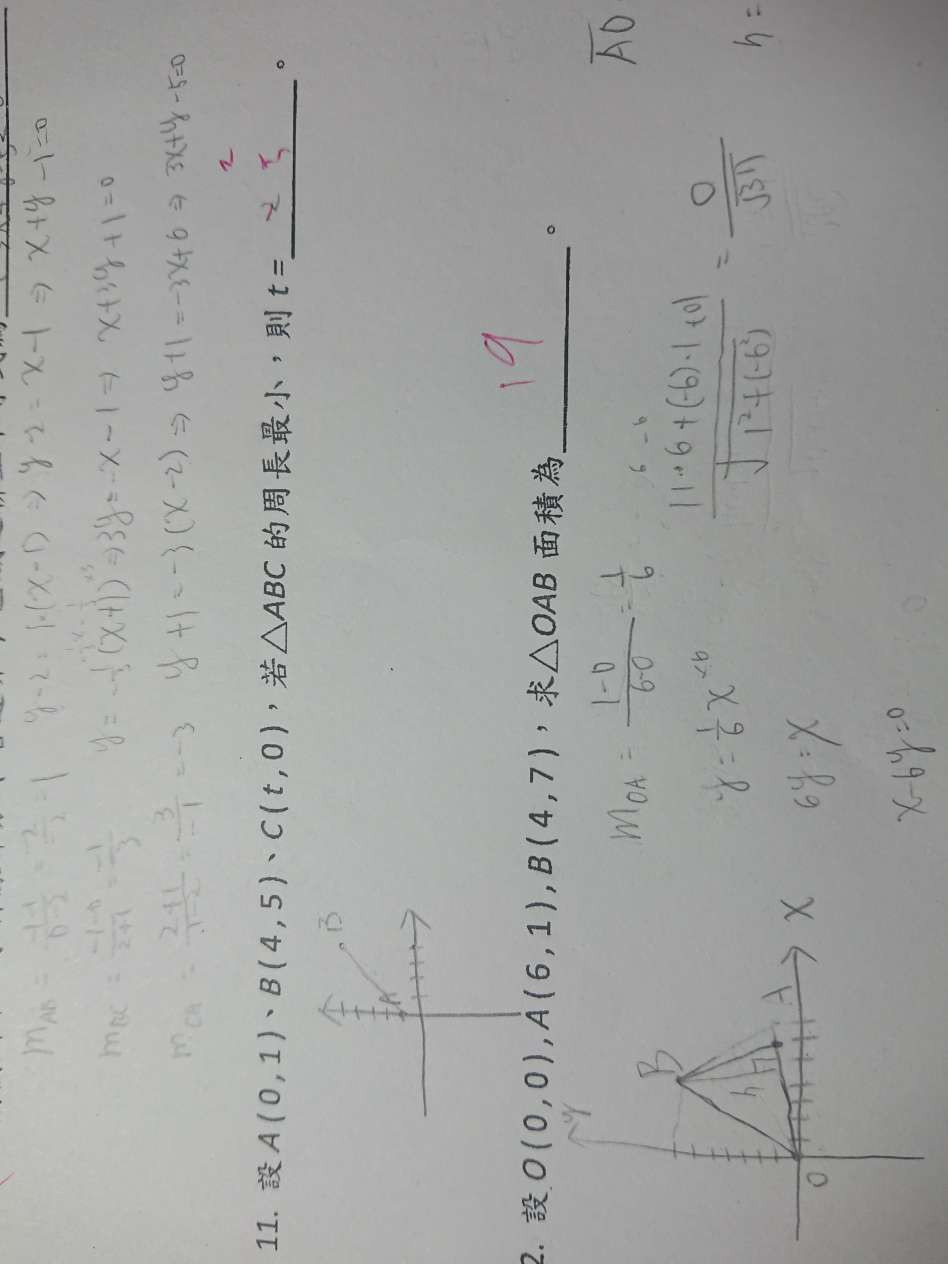 m_AB = \frac{-1-1}{0-2} = \frac{-2}{-2} = 1 y-2=1·(x-1) ⇒ y-2=x-1 ⇒ x+y-1=0
m_BC = \frac{-1-0}{2+1} = \frac{-1}{3} y=-\frac{1}{3}(x+1) ⇒ 3y=-x-1 ⇒ x+3y+1=0
m_CA = \frac{2+1}{1-2} = \frac{3}{-1} = -3 y+1=-3(x-2) ⇒ y+1=-3x+6 ⇒ 3x+y-5=0
11. 設A(0,1)、B(4,5)、C(t,0),若△ABC的周長最小,則t= 。
A B
2. 設O(0,0),A(6,1),B(4,7),求△OAB面積為 19 。
m_OA = \frac{1-0}{6-0} = \frac{1}{6}
y = \frac{1}{6}x
6y=x
x-6y=0
\frac{|1·6+(-6)·1+0|}{\sqrt{1^2+(-6)^2}} = \frac{0}{\sqrt{37}}
h=
y B h A X O